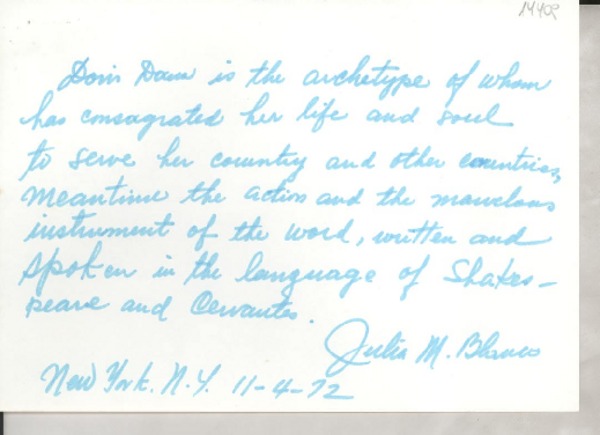 14409
Doris Dana is the archetype of whom
has consagrated her life and soul
to serve her country and other countries,
meantime the action and the marvelous
instrument of the word, written and
spoken in the language of Shakes-
peare and Cervantes.
Julia M. Blanco
New York. N.Y. 11-4-72